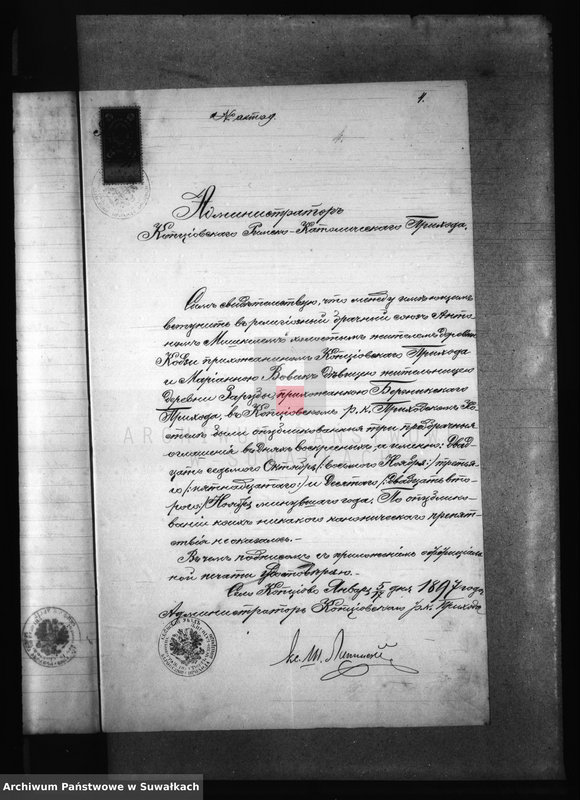 4.
№ актод
Администраторъ
Копціовскаго Римско-Католическаго Прихода.
Симъ свидѣтельствую, что между имѣющимъ
вступить въ религіозный брачный союзъ Анто
номъ холостымъ жителемъ деревни
прихожаниномъ Копціовскаго Прихода
и Маріанною Вовакъ дѣвицею жительницею
деревни прихожанкою Берникскаго
Прихода, въ Копціовскомъ р. к. Приходскомъ Ко
стелѣ были опубликованы три предбрачныя
оглашенія въ дняхъ воскресныхъ, а именно: Два
дцать седьмаго Октября /:восьмаго Ноября:/ третья
го /:пятнадцатаго:/ и Десятаго /:двадцать вто
рого:/ Ноября минувшаго года. По опублико
ваніи коихъ никакого каноническаго препят
ствія не оказалось.-
Въ чемъ подписомъ съ приложеніемъ оффиціаль
ной печати удостовѣряю.-
Село Копціово Января 5/17 дня 1897 года
Администраторъ Копціовскаго р. к. Прихода
кс.
ARCHIWUM PAŃSTWOWE
Archiwum Państwowe w Suwałkach